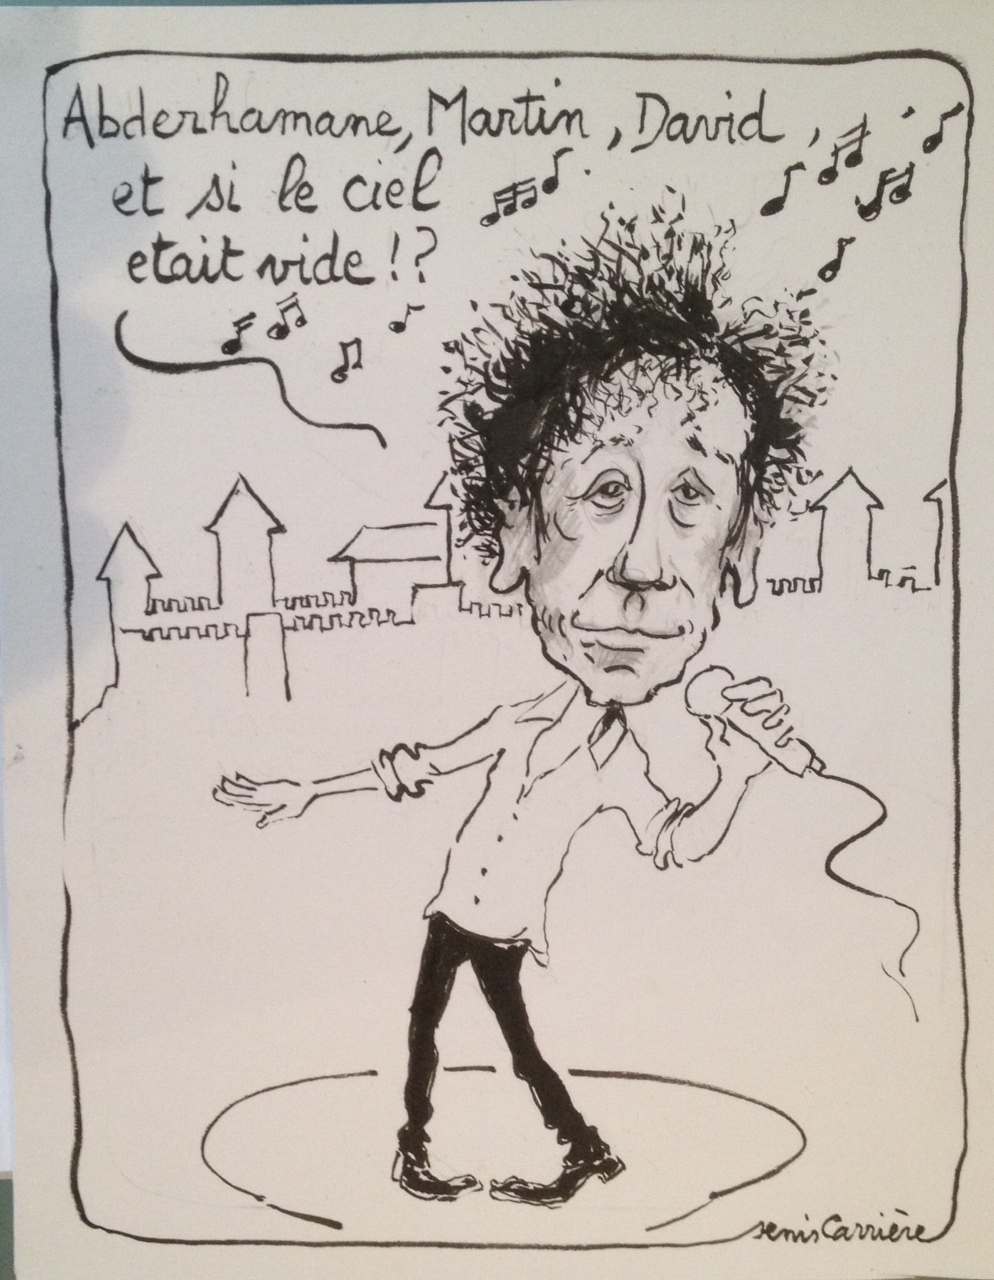 Abderhamane, Martin, David,
et si le ciel
etait vide !?
senisCarrière